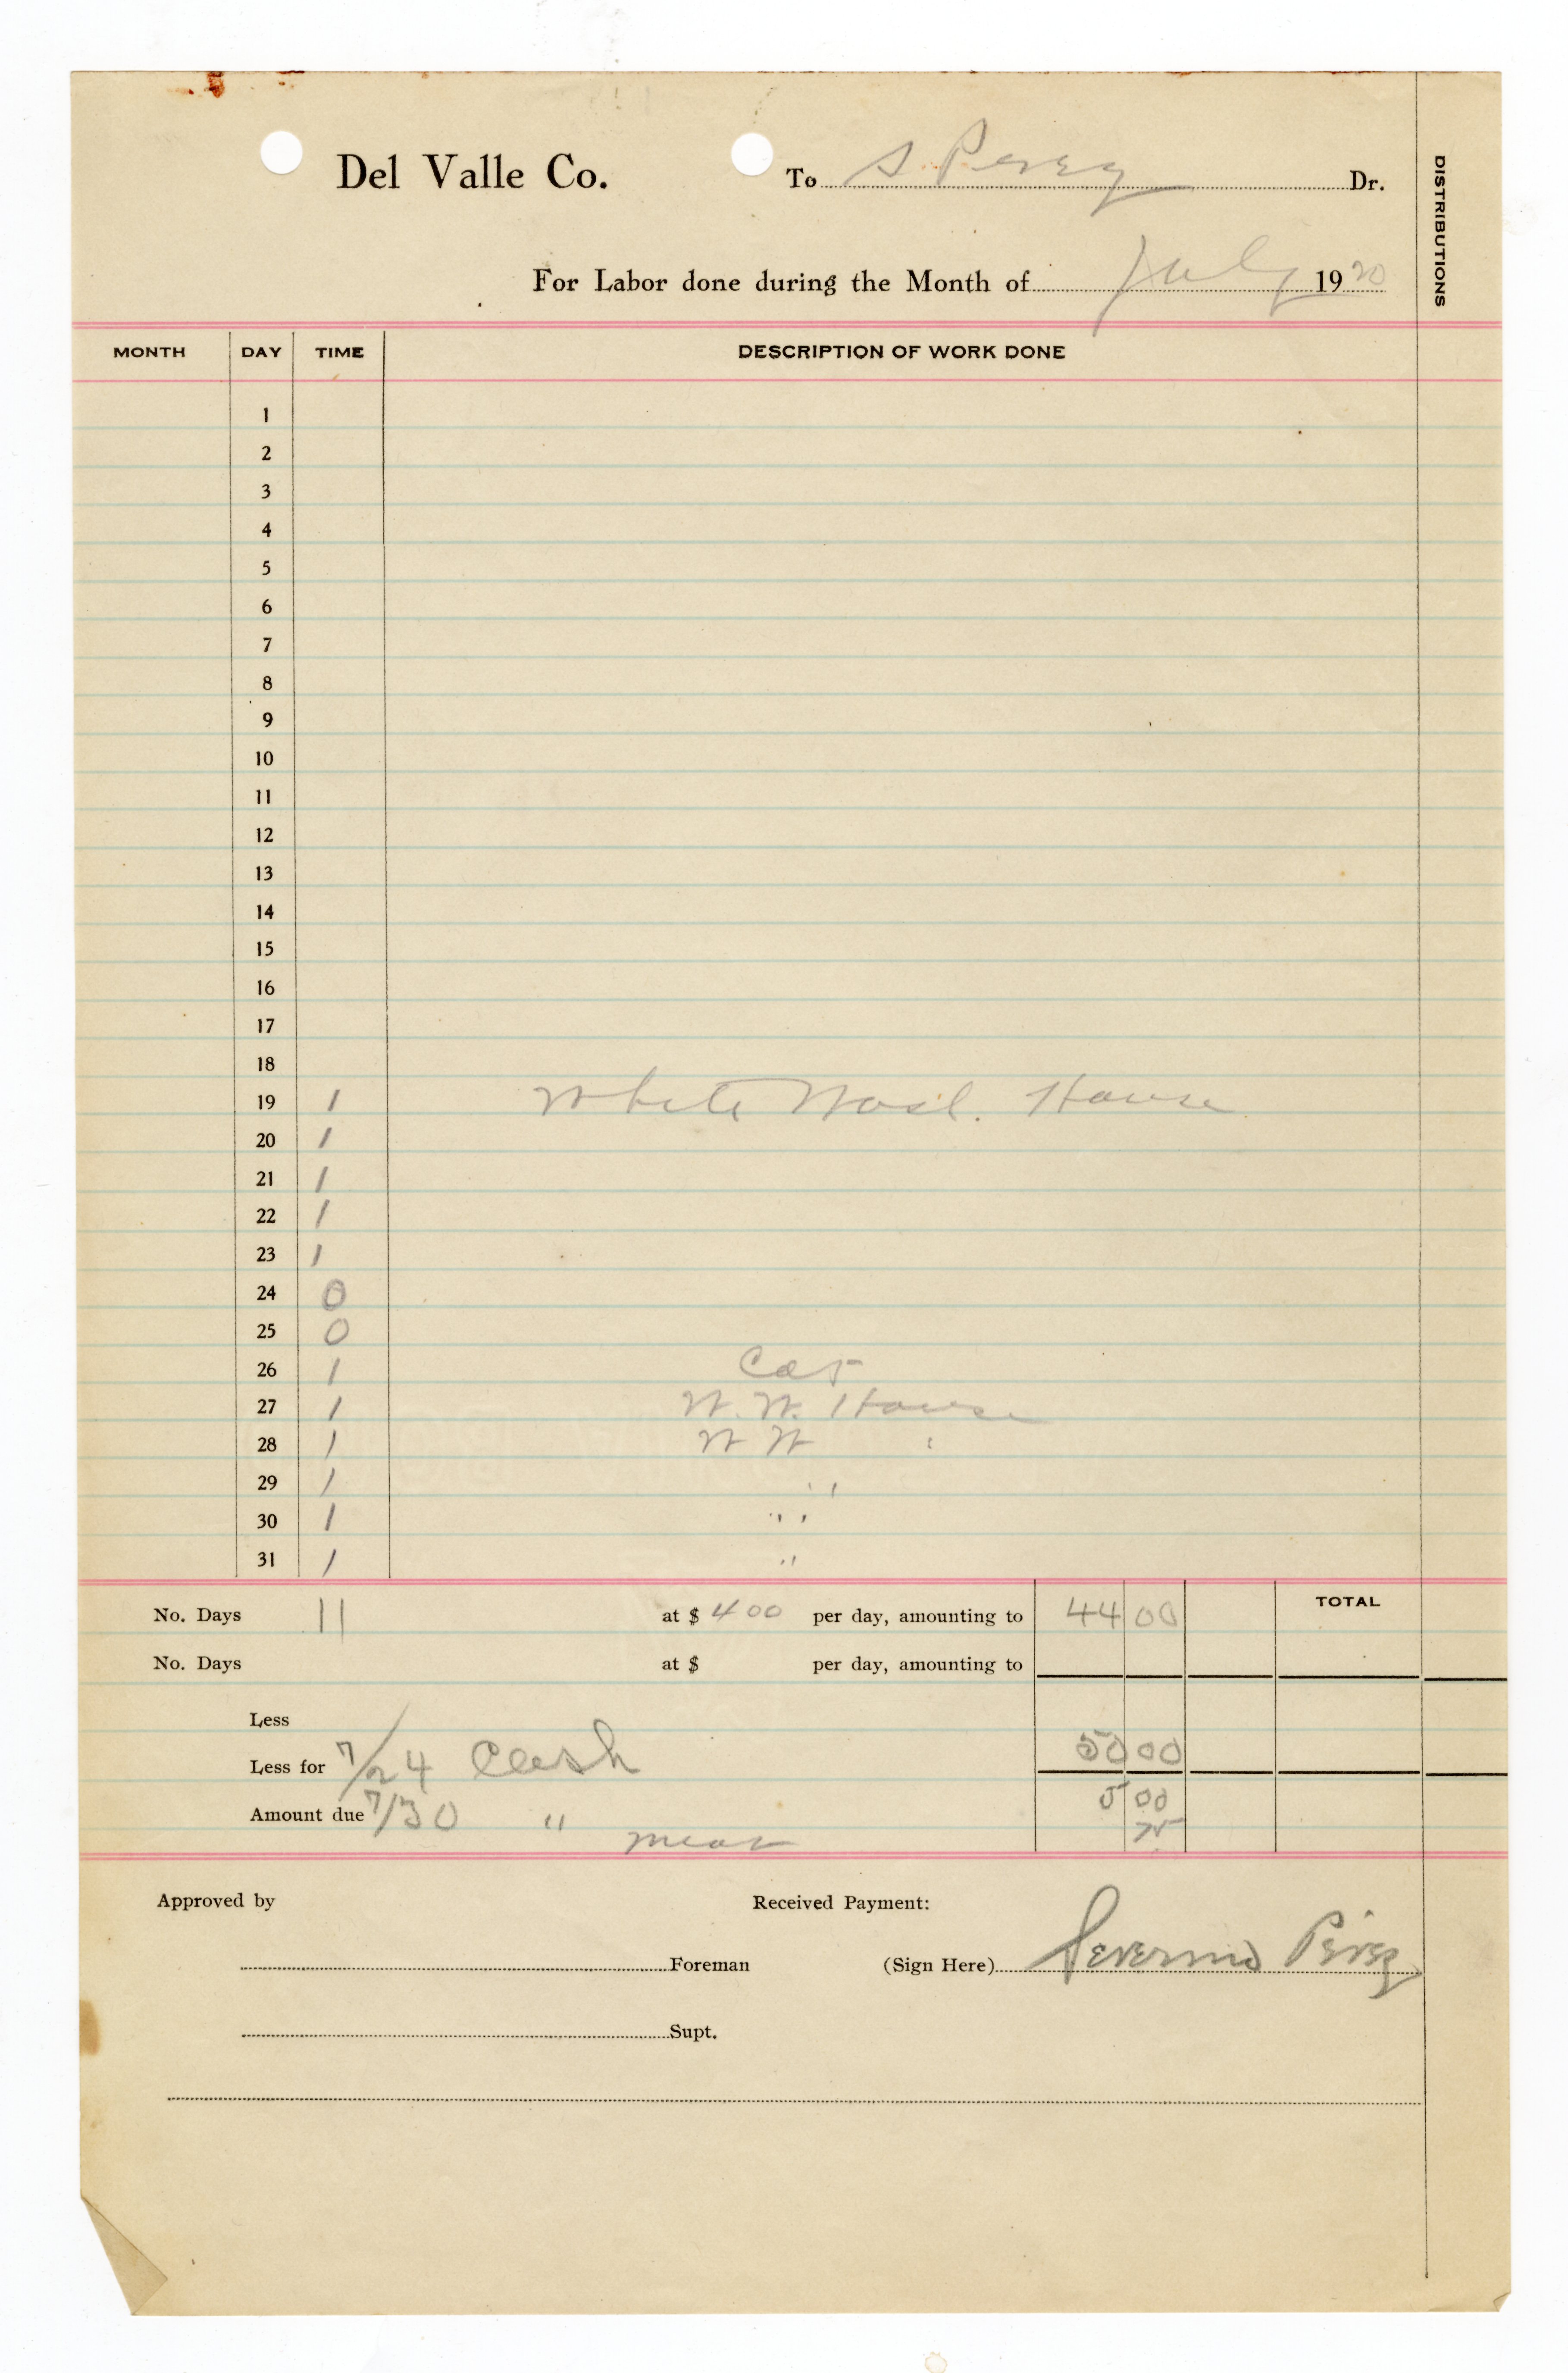 Del Valle Co. To S. Perez Dr.
DISTRIBUTIONS
For Labor done during the Month of July 1920
MONTH DAY TIME DESCRIPTION OF WORK DONE
1
2
3
4
5
6
7
8
9
10
11
12
13
14
15
16
17
18
19 1 White Wash. House
20 1
21 1
22 1
23 1
24 0
25 0
26 1
27 1 W. W. House
28 1 W W "
29 1 "
30 1 "
31 1 "
No. Days 11 at $ 4 00 per day, amounting to 44 00 TOTAL
No. Days at $ per day, amounting to
Less
Less for 7/24 Cash 50 00
Amount due 7/30 " 5 00
meat 75
Approved by Received Payment:
Foreman (Sign Here) Severino Perez
Supt.